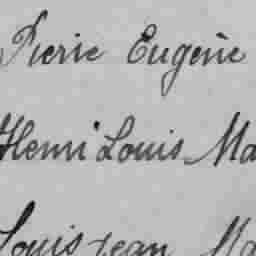 Pierre Eugène
Henri Louis Ma
Louis Jean Ma